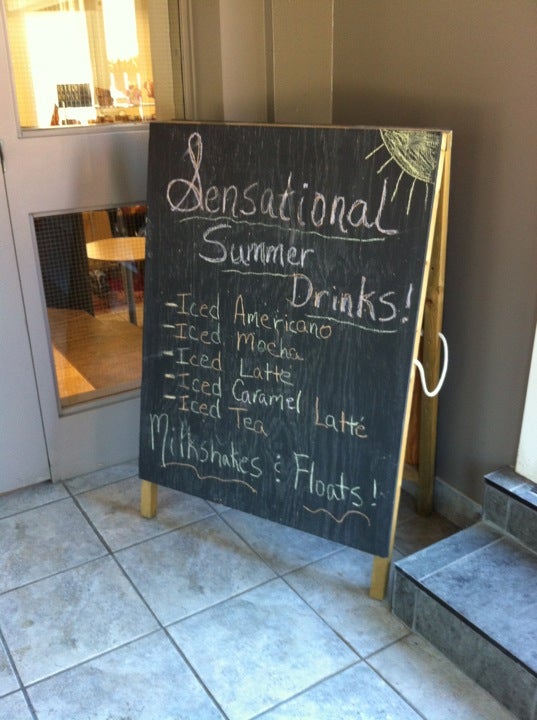 Sensational
Summer
Drinks!
-Iced Americano
-Iced Mocha
-Iced Latté
-Iced Caramel Latté
-Iced Tea
Milkshakes & Floats!